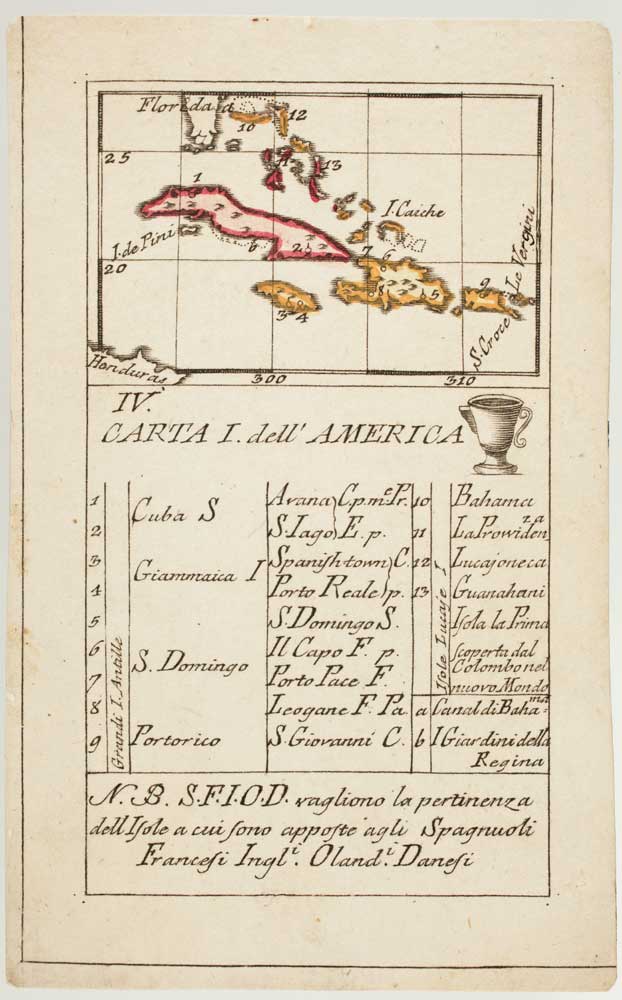 Florida a
10
12
25
11
13
1
I. Caiche
I. de Pini
b
2
7
6
20
3
4
8
5
9
Le Vergini
S. Croce
Honduras
300
310
IV.
CARTA I. dell' AMERICA
Grandi I. Antille
1 Cuba S Avana C. p. m.e Pr.
2 S. Iago E. p.
3 Giammaica I Spanishtown C.
4 Porto Reale p.
5 S. Domingo S. Domingo S.
6 Il Capo F. p.
7 Porto Pace F.
8 Leogane F. Pa.
9 Portorico S. Giovanni C.
Isole Lucaje I
10 Bahama
11 La Prowidenza
12 Lucajoneca
13 Guanahani
Isola la Prima
scoperta dal
Colombo nel
nuovo Mondo
a Canal di Bahama
b I Giardini della
Regina
N. B. S. F. I. O. D. vagliono la pertinenza
dell Isole a cui sono apposte agli Spagnuoli
Francesi Ingl.i Oland.i Danesi